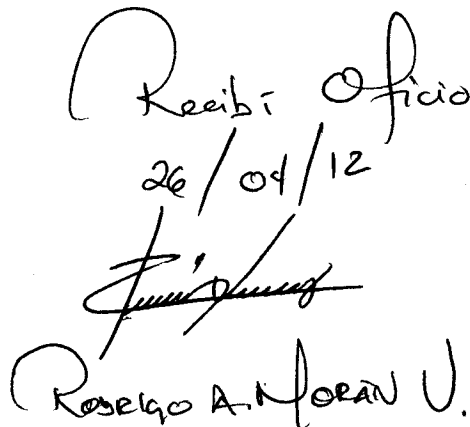 Recibí Oficio
26/04/12
Rodrigo A. Morán V.